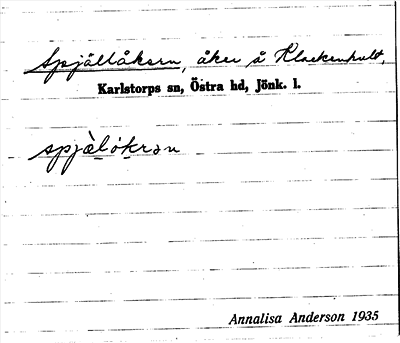 Spjällåkern, åker å Klackenhult,
Karlstorps sn, Östra hd, Jönk. l.
spjàlókrən
Annalisa Anderson 1935